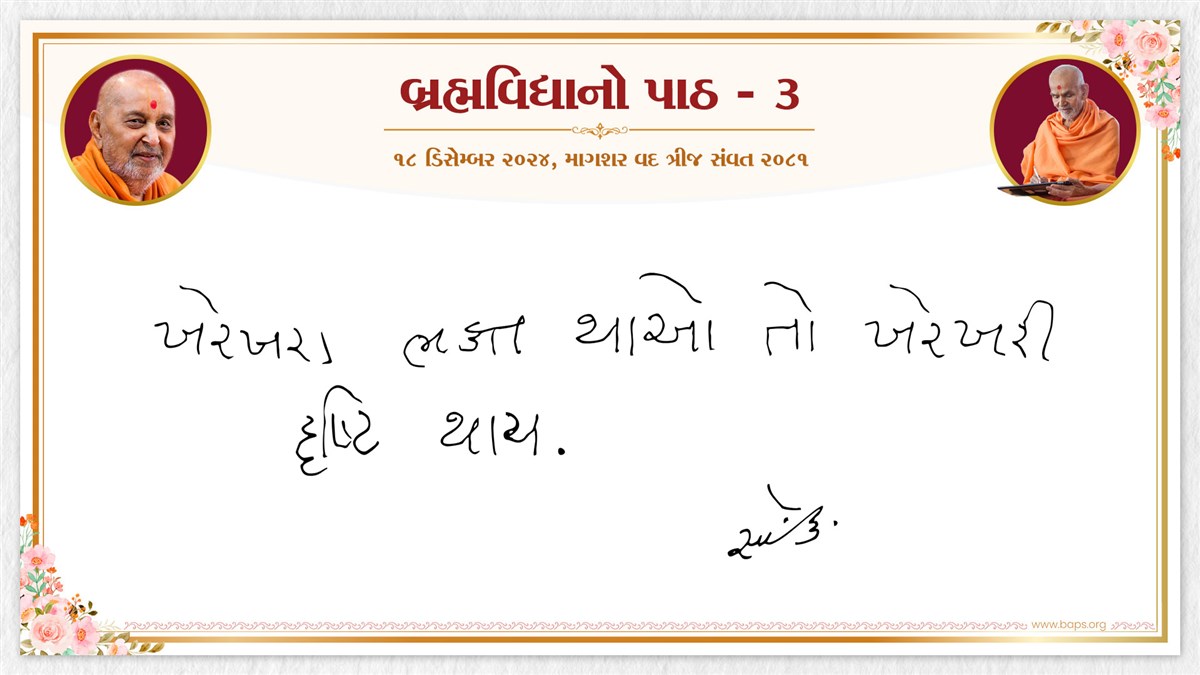 બ્રહ્મવિદ્યાનો પાઠ - ૩
૧૮ ડિસેમ્બર ૨૦૨૪, માગશર વદ ત્રીજ સંવત ૨૦૮૧
ખેરખરા ભક્ત થાઓ તો ખેરખરી
દૃષ્ટિ થાય.
www.baps.org